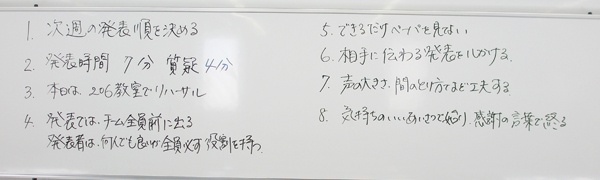 1. 次週の発表順を決める
2. 発表時間 7分 質疑 4分
3. 本日は、206教室でリハーサル
4. 発表では、チーム全員前に出る
発表者は、何人でも良いが全員必ず役割を持つ。
5. できるだけペーパを見ない
6. 相手に伝わる発表を心がける。
7. 声の大きさ、間のとり方など工夫する
8. 気持ちのいいあいさつで始り、感謝の言葉で終る